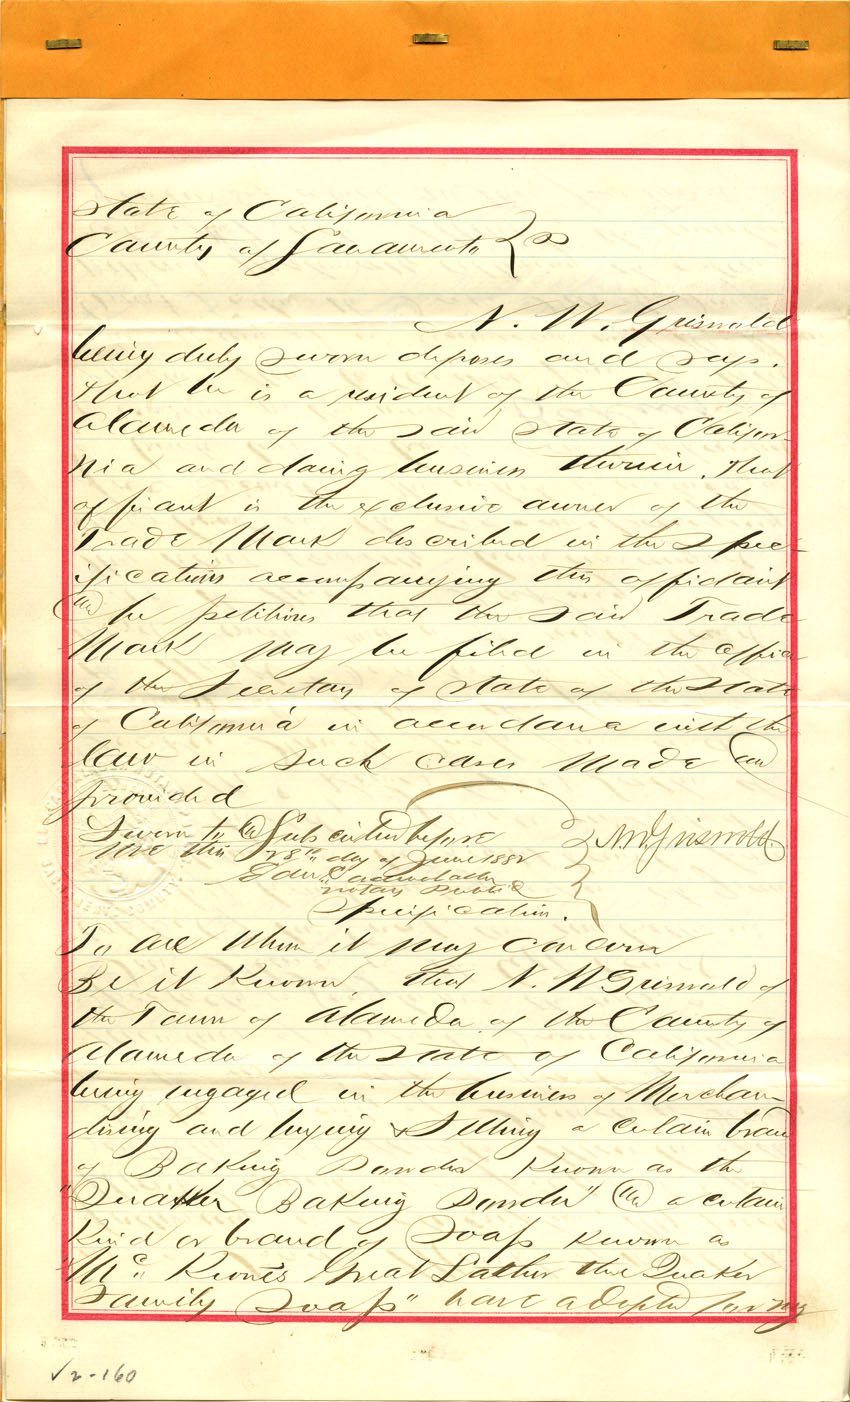 State of California
County of Sacramento } ss
N. W. Griswold
being duly sworn deposes and says.
that he is a resident of the County of
Alameda of the said State of Califor-
nia and doing business therein, that
affiant is the exclusive owner of the
Trade Mark described in the Spec-
ifications accompanying this affidavit
and he petitions that the said Trade
Mark may be filed in the office
of the Secretary of State of the State
of California in accordance with the
law in such cases made and
provided
Sworn to and Subscribed before } N. W. Griswold.
me this 28th day of June 1882
Notary Public
Specification.
To all whom it may concern
Be it Known, that N. W Griswold of
the Town of Alameda of the County of
Alameda of the State of California
being engaged in the business of Merchan-
dising and buying & Selling a certain brand
of Baking Powder Known as the
"Quaker Baking Powder" and a certain
Kind or brand of Soap Known as
"Mc Keone's Great Lather the Quaker
Family Soap" have adopted for my
√2-160